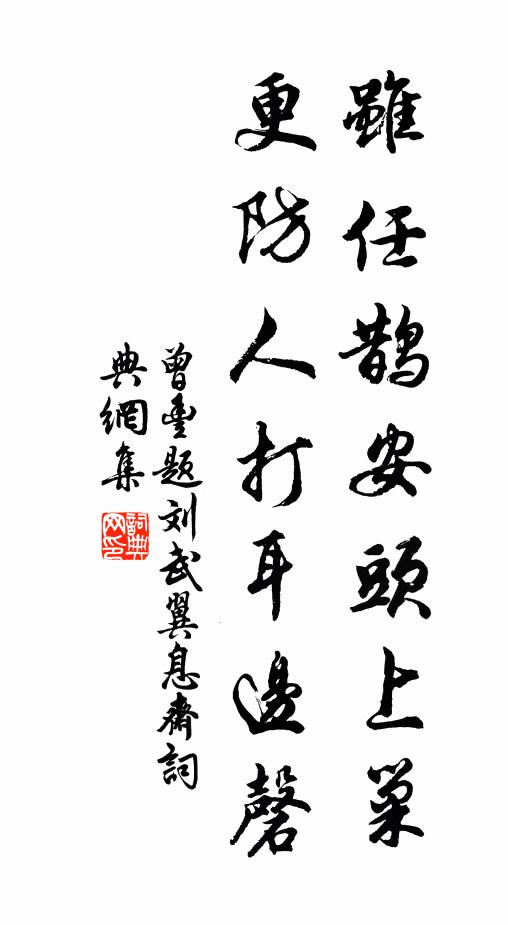 雖任鵲安頭上巢
更防人打耳邊磬
曾豊題刘武翼息齋詞
典網集
詞典網印